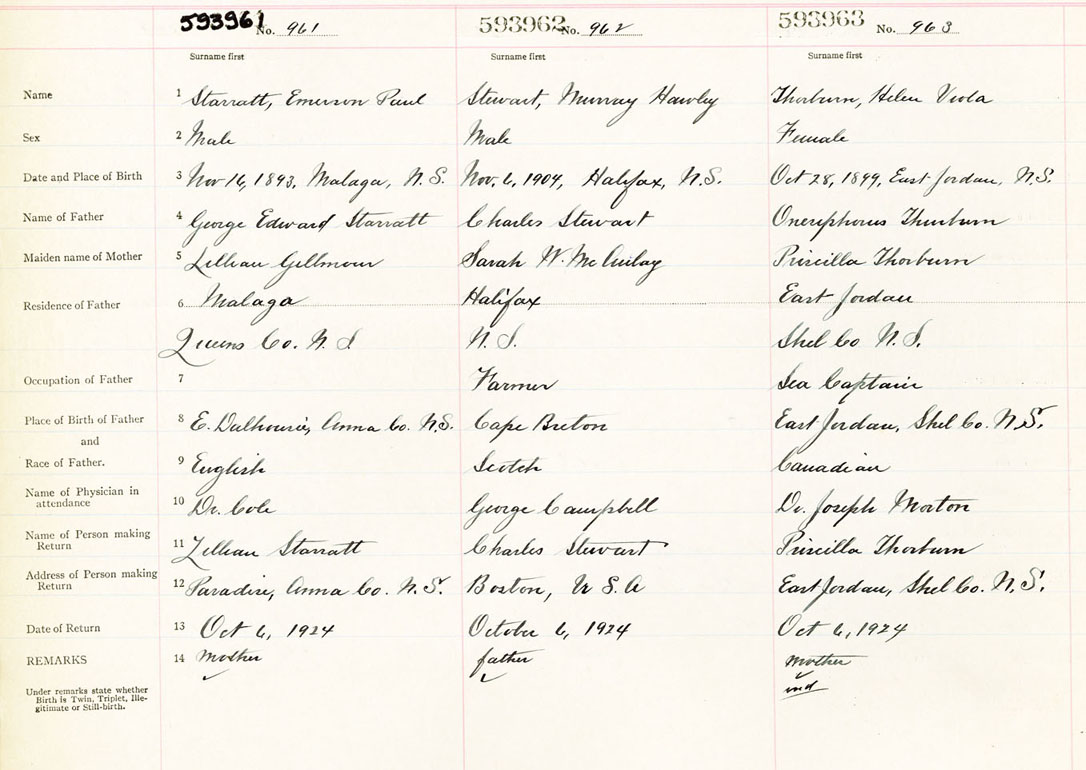 593961 No. 961 593962 No. 962 593963 No. 963
Surname first Surname first Surname first
Name 1 Starratt, Emerson Paul Stewart, Murray Hawley Thorburn, Helen Viola
Sex 2 Male Male Female
Date and Place of Birth 3 Nov 16, 1893, Malaga, N.S. Nov. 6, 1904, Halifax, N.S. Oct 28, 1899, East Jordan, N.S.
Name of Father 4 George Edward Starratt Charles Stewart Onesiphorus Thorburn
Maiden name of Mother 5 Lillian Gillmour Sarah W. McAulay Priscilla Thorburn
Residence of Father 6 Malaga Halifax East Jordan
Queens Co. N.S N.S. Shel Co N.S.
Occupation of Father 7 Farmer Sea Captain
Place of Birth of Father 8 E. Dalhousie, Anna Co. N.S. Cape Breton East Jordan, Shel Co. N.S.
and
Race of Father. 9 English Scotch Canadian
Name of Physician in
attendance 10 Dr. Cole George Campbell Dr. Joseph Morton
Name of Person making
Return 11 Lillian Starratt Charles Stewart Priscilla Thorburn
Address of Person making
Return 12 Paradise, Anna Co. N.S. Boston, U S. A East Jordan, Shel Co. N.S.
Date of Return 13 Oct 6, 1924 October 6, 1924 Oct 6, 1924
REMARKS 14 mother father mother
Under remarks state whether
Birth is Twin, Triplet, Ille-
gitimate or Still-birth.